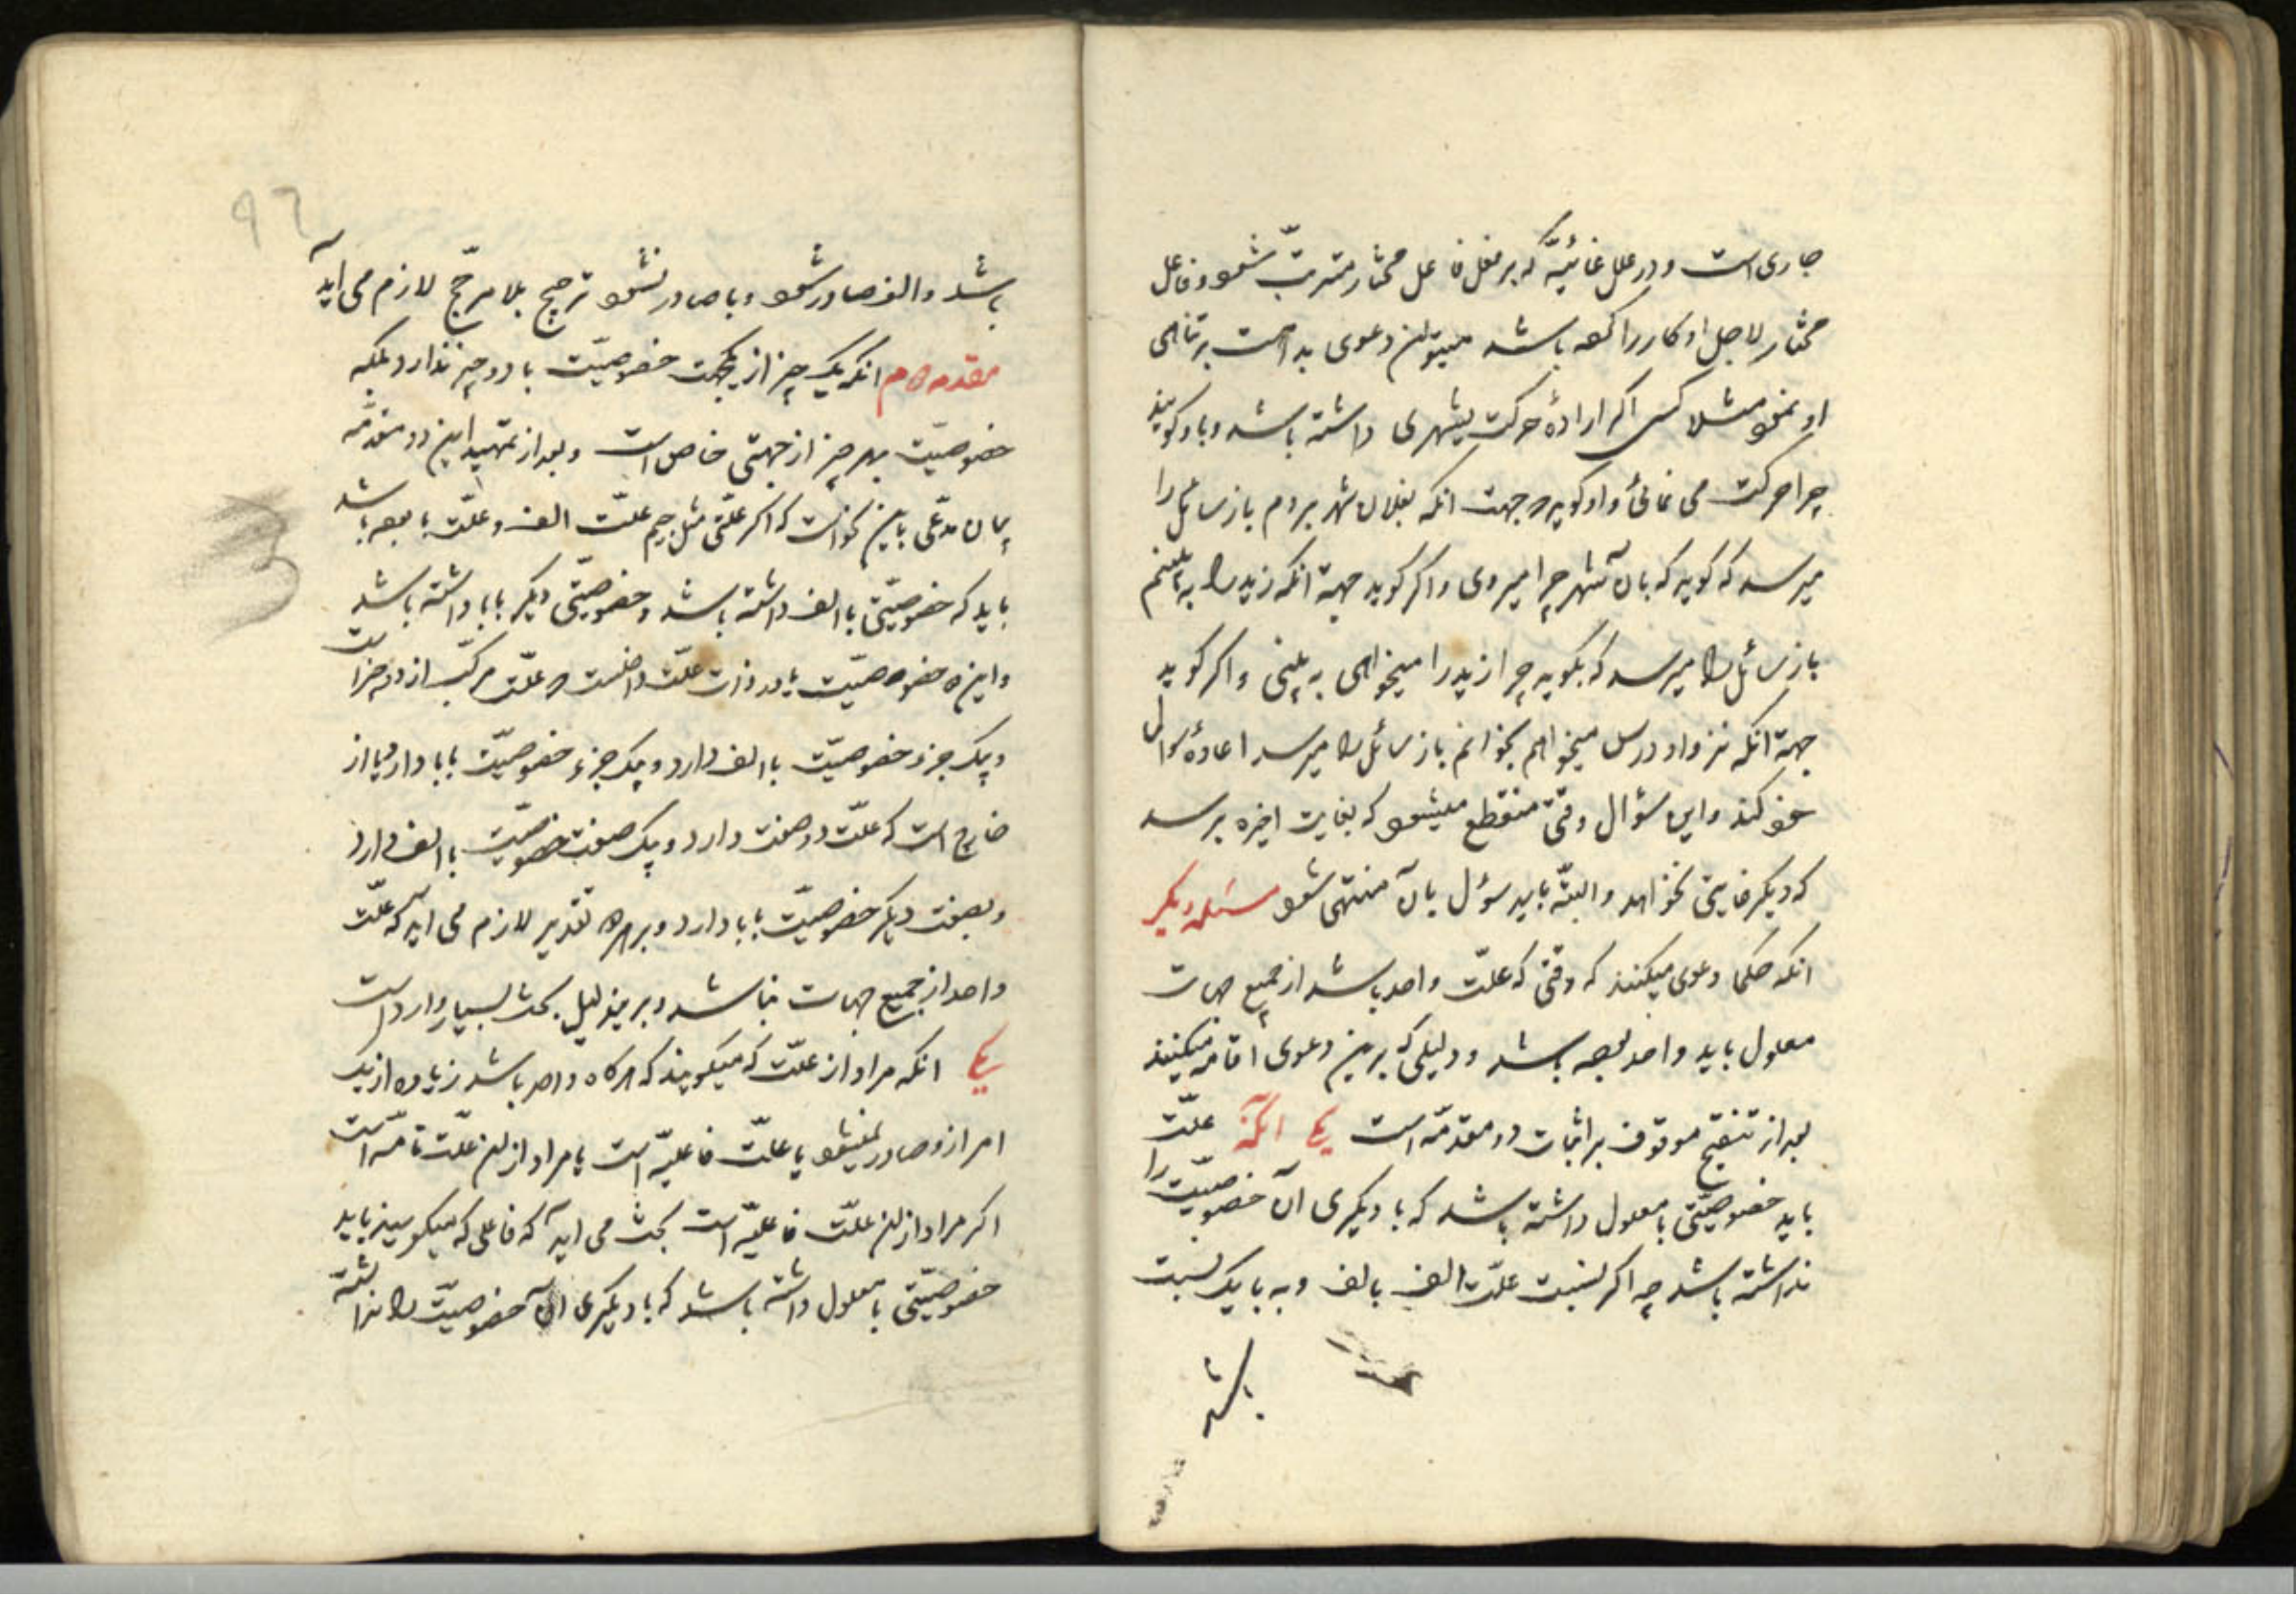 جاری است و در علل غائیّه که بر فعل فاعل مختار مترتّب شود و فاعل
مختار لاجل او کار را کرده باشد میتوان دعوی بداهت بر تناهی
او نمود مثلا کسی اکر ارادهٔ حرکت بشهری داشته باشد و باو کویند
چرا حرکت می نمائی و او کوید جهت انکه بفلان شهر بروم باز سائل را
میرسد که کوید که بآن شهر چرا میروی و اکر کوید جهة انکه زید را به بینم
باز سائل را میرسد که بکوید چرا زید را میخواهی به بینی و اکر کوید
جهة انکه نزد او درس میخواهم بخوانم باز سائل را میرسد اعادهٔ سوال
خود کند و این سؤال وقتی منقطع میشود که بغایت اخیره برسد
که دیکر غایتی نخواهد و البتّه باید سؤل بآن منتهی شود مسئله دیکر
انکه حکما دعوی میکنند که وقتی که علّت واحد باشد از جمیع جهات
معلول باید واحد بوده باشد و دلیلی که برین دعوی أقامه میکنند
بعد از تنقیح موقوف بر اثبات دو مقدّمه است یکی آنکه علّت
باید خصوصیّتی با معلول داشته باشد که با دیکری آن خصوصیّت را
نداشته باشد چه اکر نسبت علّت الف بالف و به با یک نسبت
باشد
٩٦
باشد و الف صادر شود و با صادر نشود ترجیح بلا مرجّح لازم می آید
مقدمه دوم انکه یک چیز از یکجهت خصوصیّت با دو چیز ندارد بلکه
خصوصیّت بهر چیز از جهتی خاص است و بعد از تمهید این دو مقدّمه
بیان مدّعی باین نحو است که اکر علّتی مثل جیم علّت الف و علّت با بوده باشد
باید که خصوصیّتی با الف داشته باشد و خصوصیّتی دیکر با با داشته باشد
و این دو خصوصیّت یا در ذات علّت داخلست و علّت مرکّب از دو جزء است
و یک جزء خصوصیّت با الف دارد و یک جزء خصوصیّت با با دارد یا از
خارج است که علّت دو صفت دارد و یک صفت خصوصیّت با الف دارد
و بصفت دیکر خصوصیّت با با دارد و بر هر دو تقدیر لازم می آید که علّت
واحد از جمیع جهات نباشد و برین دلیل بحث بسیار وارد است
یکی انکه مراد از علّت که میکویند که هرکاه واحد باشد زیاده از یک
امر ازو صادر نمیشود یا علّت فاعلیّه است یا مراد ازین علّت تامّه است
اکر مراد ازین علّت فاعلیّه است بحث می آید که فاعلی که میکویند باید
خصوصیّتی با معلول داشته باشد که با دیکری آن خصوصیّت را نداشته